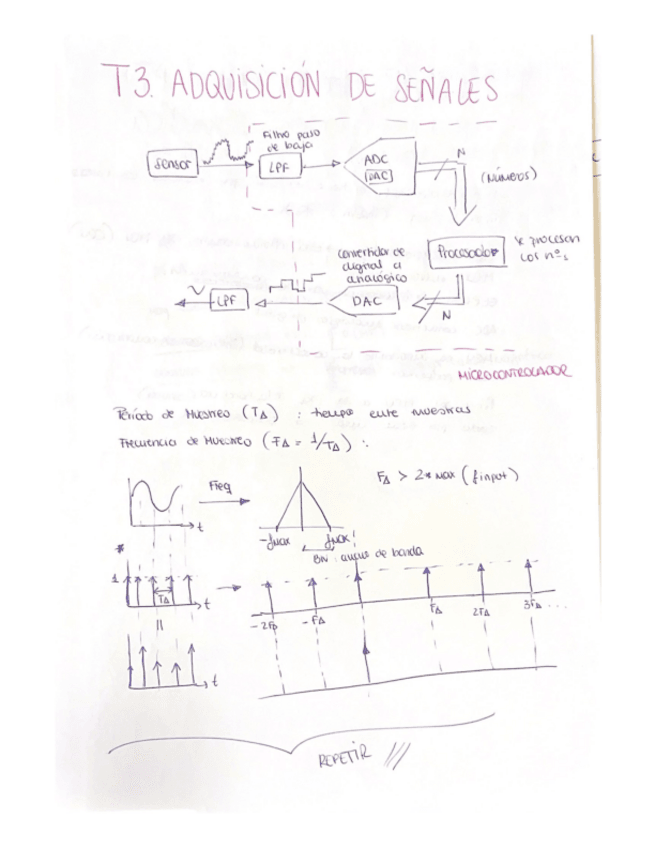 T3. ADQUISICIÓN DE SEÑALES
Filtro paso
de baja
Sensor
LPF
ADC
DAC
N
(NÚMEROS)
Procesador
se procesan
los nºs
convertidor de
digital a
analógico
LPF
DAC
N
MICROCONTROLADOR
Período de Muestreo (TΔ) : tiempo entre muestras
Frecuencia de Muestreo (FΔ = 1/TΔ) :
Freq
FΔ > 2* max (finput)
t
-fmax
fmax
BW: ancho de banda
*
1
TΔ
t
-2FΔ
-FΔ
FΔ
2FΔ
3FΔ ...
t
REPETIR ///